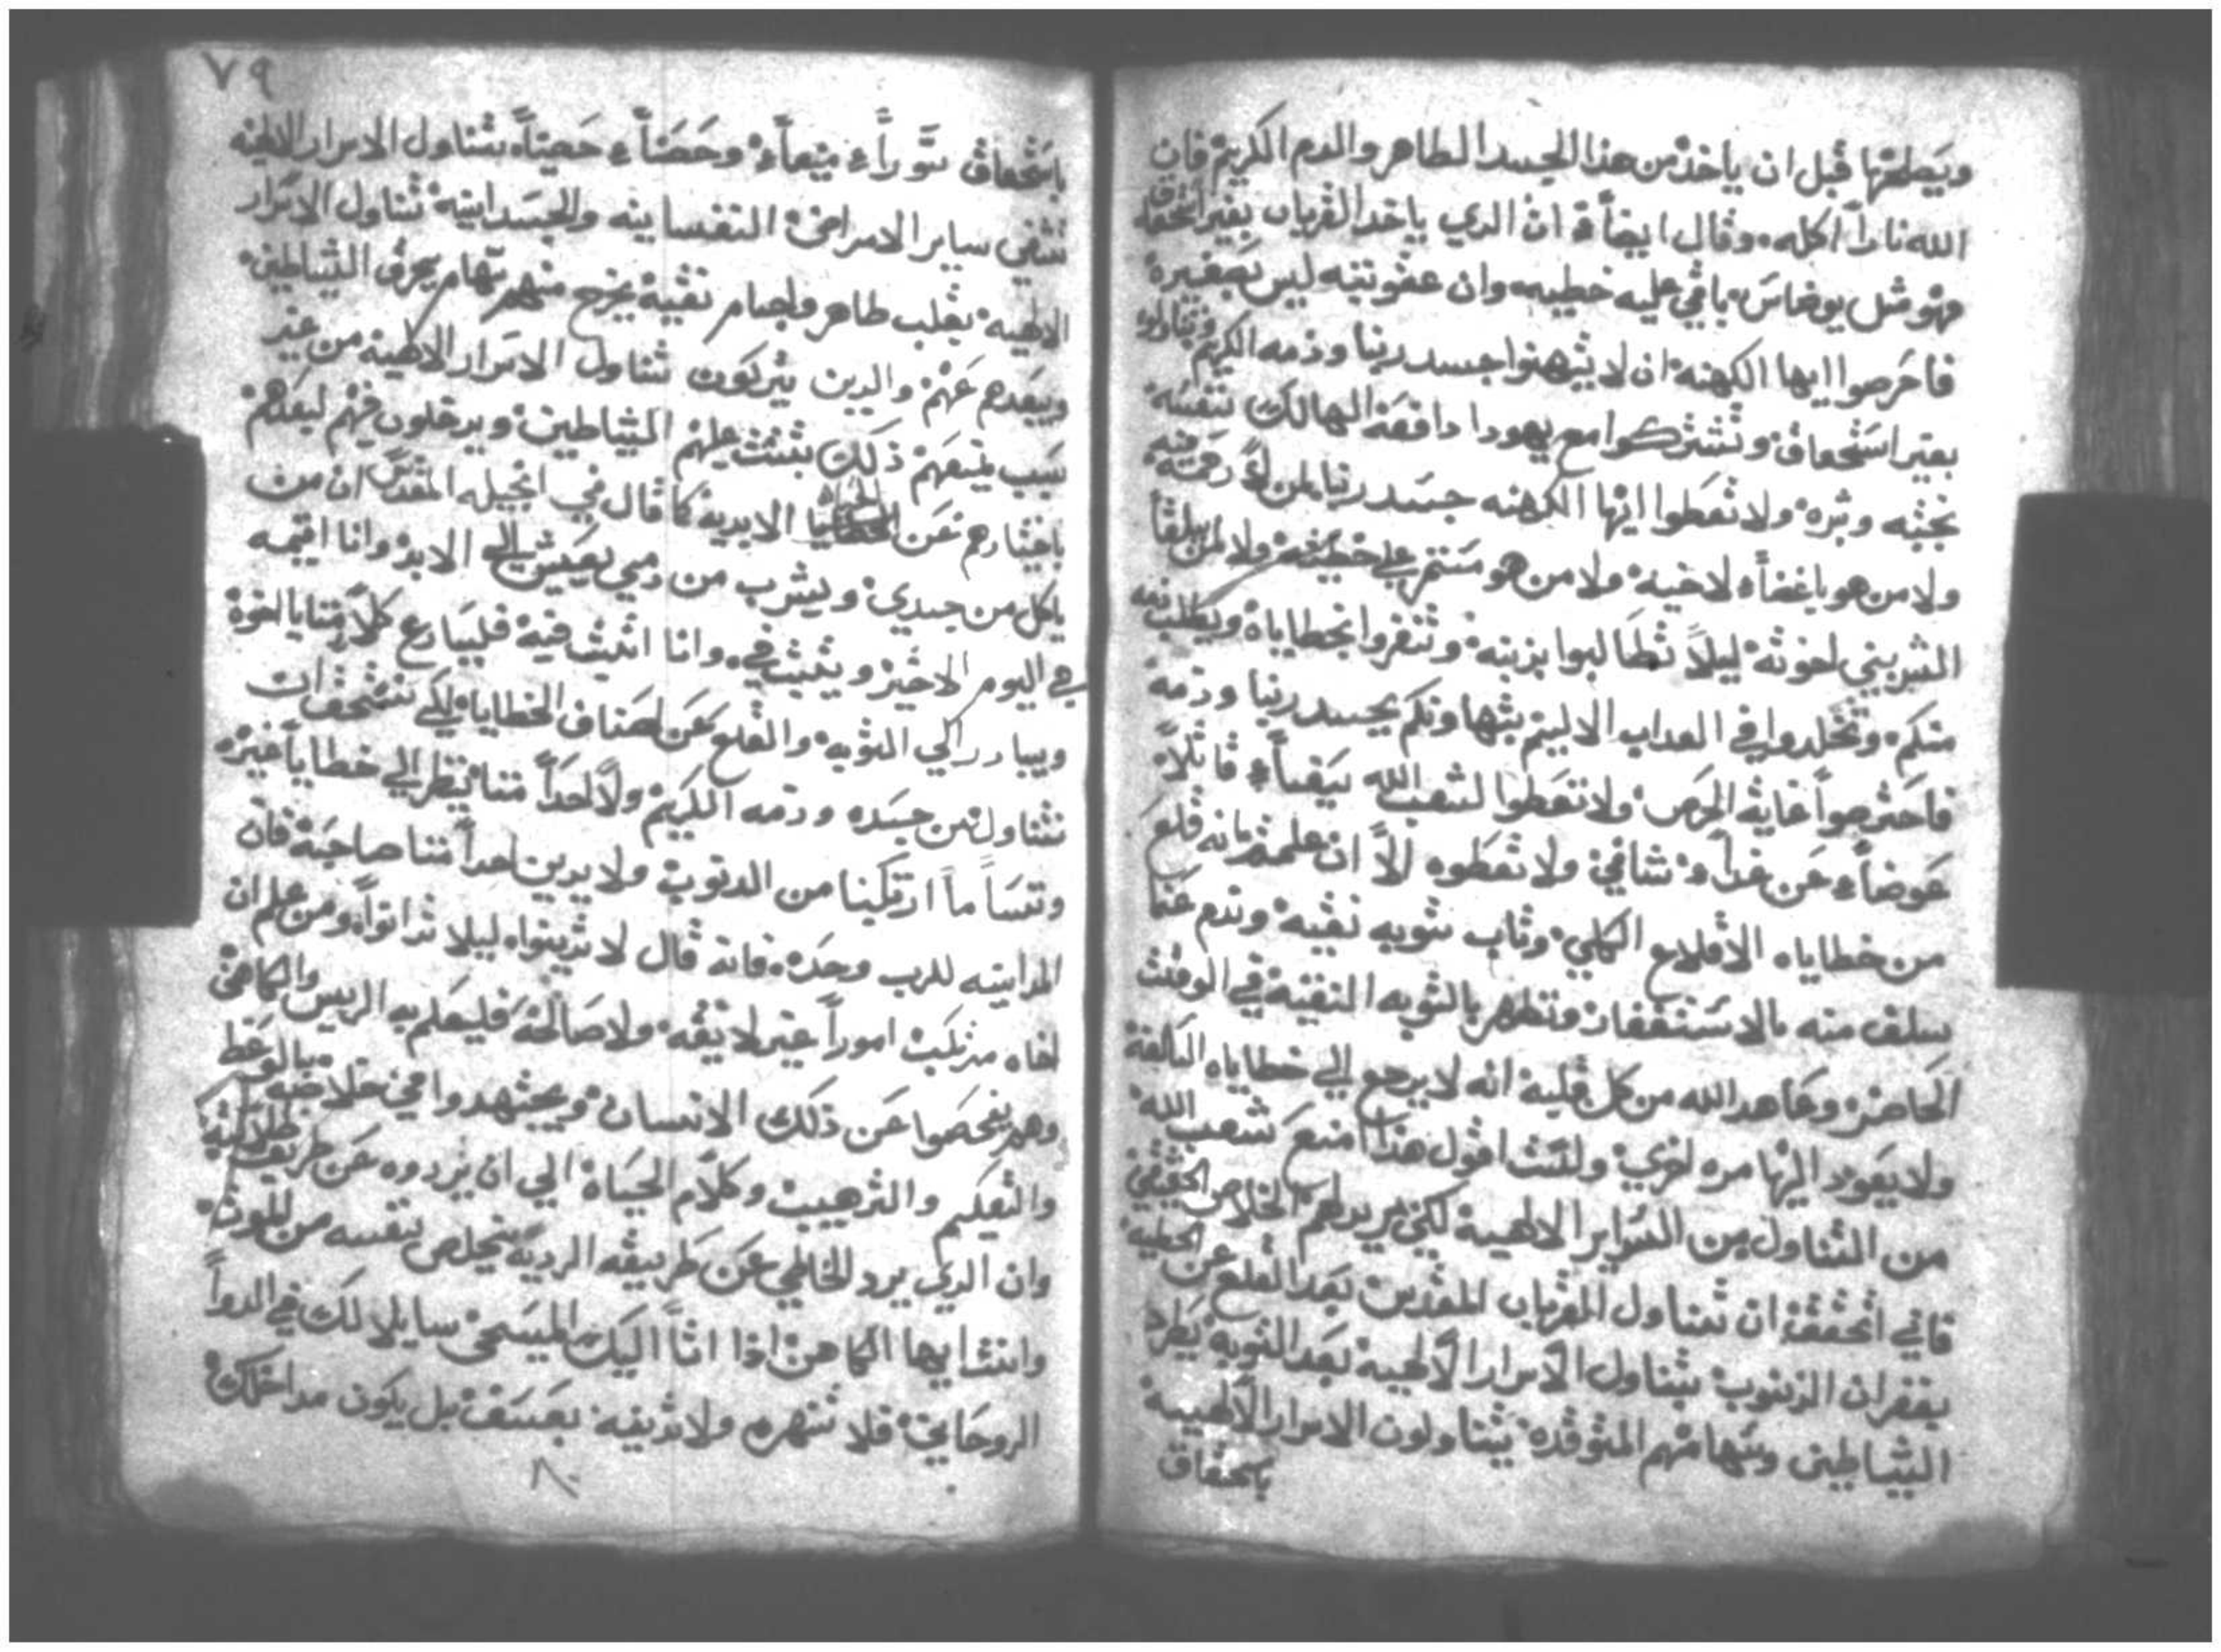 ويصطلحها قبل ان ياخذ من هذا الجسد الطاهر والدم الكريم فان
الله نارا اكله وقال ايضاً ان الدي ياخد القربان بغير استحقاق
فهو مثل يوضاس باقي عليه خطيه وان عقوبته ليس بصغيره
فاحرصوا ايها الكهنه ان لا تهنوا جسد ربنا ودمه الكريم وتناولوا
بغير استحقاق وتشتركوا مع يهودا دافعه الهالك نفسه
بخبثه وشره ولا تعطوا ايها الكهنه جسد ربنا لمن
ولا من هو باغضاً لاخيه ولا من هو مستمر على خطيته ولا لمن
الشر بيني اخوته ليلاً تطالبوا بزبنه وتنغروا بخطاياه ويطلب دمه
منكم وتخلدوا في العداب الاليم بتهاونكم بجسد ربنا ودمه
فاحترصوا غاية الحرص ولا تعطوا لشعب الله قاتلاً
عوضاً عن غداً شافي ولا تعطوه الاً ان علمتم انه قلع
من خطاياه الاقلاع الكلي وتاب توبه نقيه وندم عما
سلف منه بالاستغفار وتطهر بالتوبه النقيه في الوقت
الحاضر وعاهد الله من كل قلبه انه لا يرجع الي خطاياه السالفة
ولا يعود اليها مره اخري ولست اقول هذا امنع شعب الله
من التناول من السراير الالهيه لكني اريد لهم الخلاص الحقيقي
فاني اتحقق ان تناول القربان المقدس بعد القلع عن الخطيه
بغفران الذنوب بتناول الاسرار الالهيه بعد التوبه يطرد
الشياطين وسهامهم المتوقده يتناولون الاسرار الالهيه
باستحقاق
٧٩
باستحقاق سوراً منيعاً وحصناً حصيناً بتناول الاسرار الالهيه
تشفي ساير الامراض النفسانيه والجسدانيه تناول الاسرار
الالهيه بقلب طاهر واجسام نقيه يخرج منهم سهام يحرق الشياطين
ويبعدهم عنهم والدين يتركون تناول الاسرار الالهيه من غير
سبب يمنعهم ذلك تتبت عليهم الشياطين ويدخلون فيهم لبعدهم
باختيارهم عن الحياه الابديه كما قال في انجيله المقدس ان من
ياكل من جسدي ويشرب من دمي يعيش الي الابد وانا اقيمه
في اليوم الاخير ويثبت في وانا اثبت فيه فليسارع كلاً منا يا اخوة
ويبادر الي التوبه والقلع عن اصناف الخطايا لكي نستحق ان
نتناول من جسده ودمه الكريم ولا احداً منا ينظر الي خطايا غيره
وننسا ما ارتكبنا من الدنوب ولا يدين احداً منا صاحبه فان
المداينه للرب وحده فانه قال لا تدينوا ليلا تدانوا ومن علم ان
اخاه مرتكب اموراً غير لايقه ولا صالحه فليعلم به الريس والكاهن
وهم يفحصوا عن ذلك الانسان ويجتهدوا في خلاصه بالوعظ
والتعليم والترهيب وكلام الحياة الي ان يردوه عن طريق ضلالته
وان الدي يرد الخاطي عن طريقه الرديه يخلص نفسه من الموت
وانت ايها الكاهن اذا اتا اليك المسيحي سايلا لك في الدواً
الروحاني فلا تنهره ولا تدينه بعسف بل يكون مداخلتك
٨٠